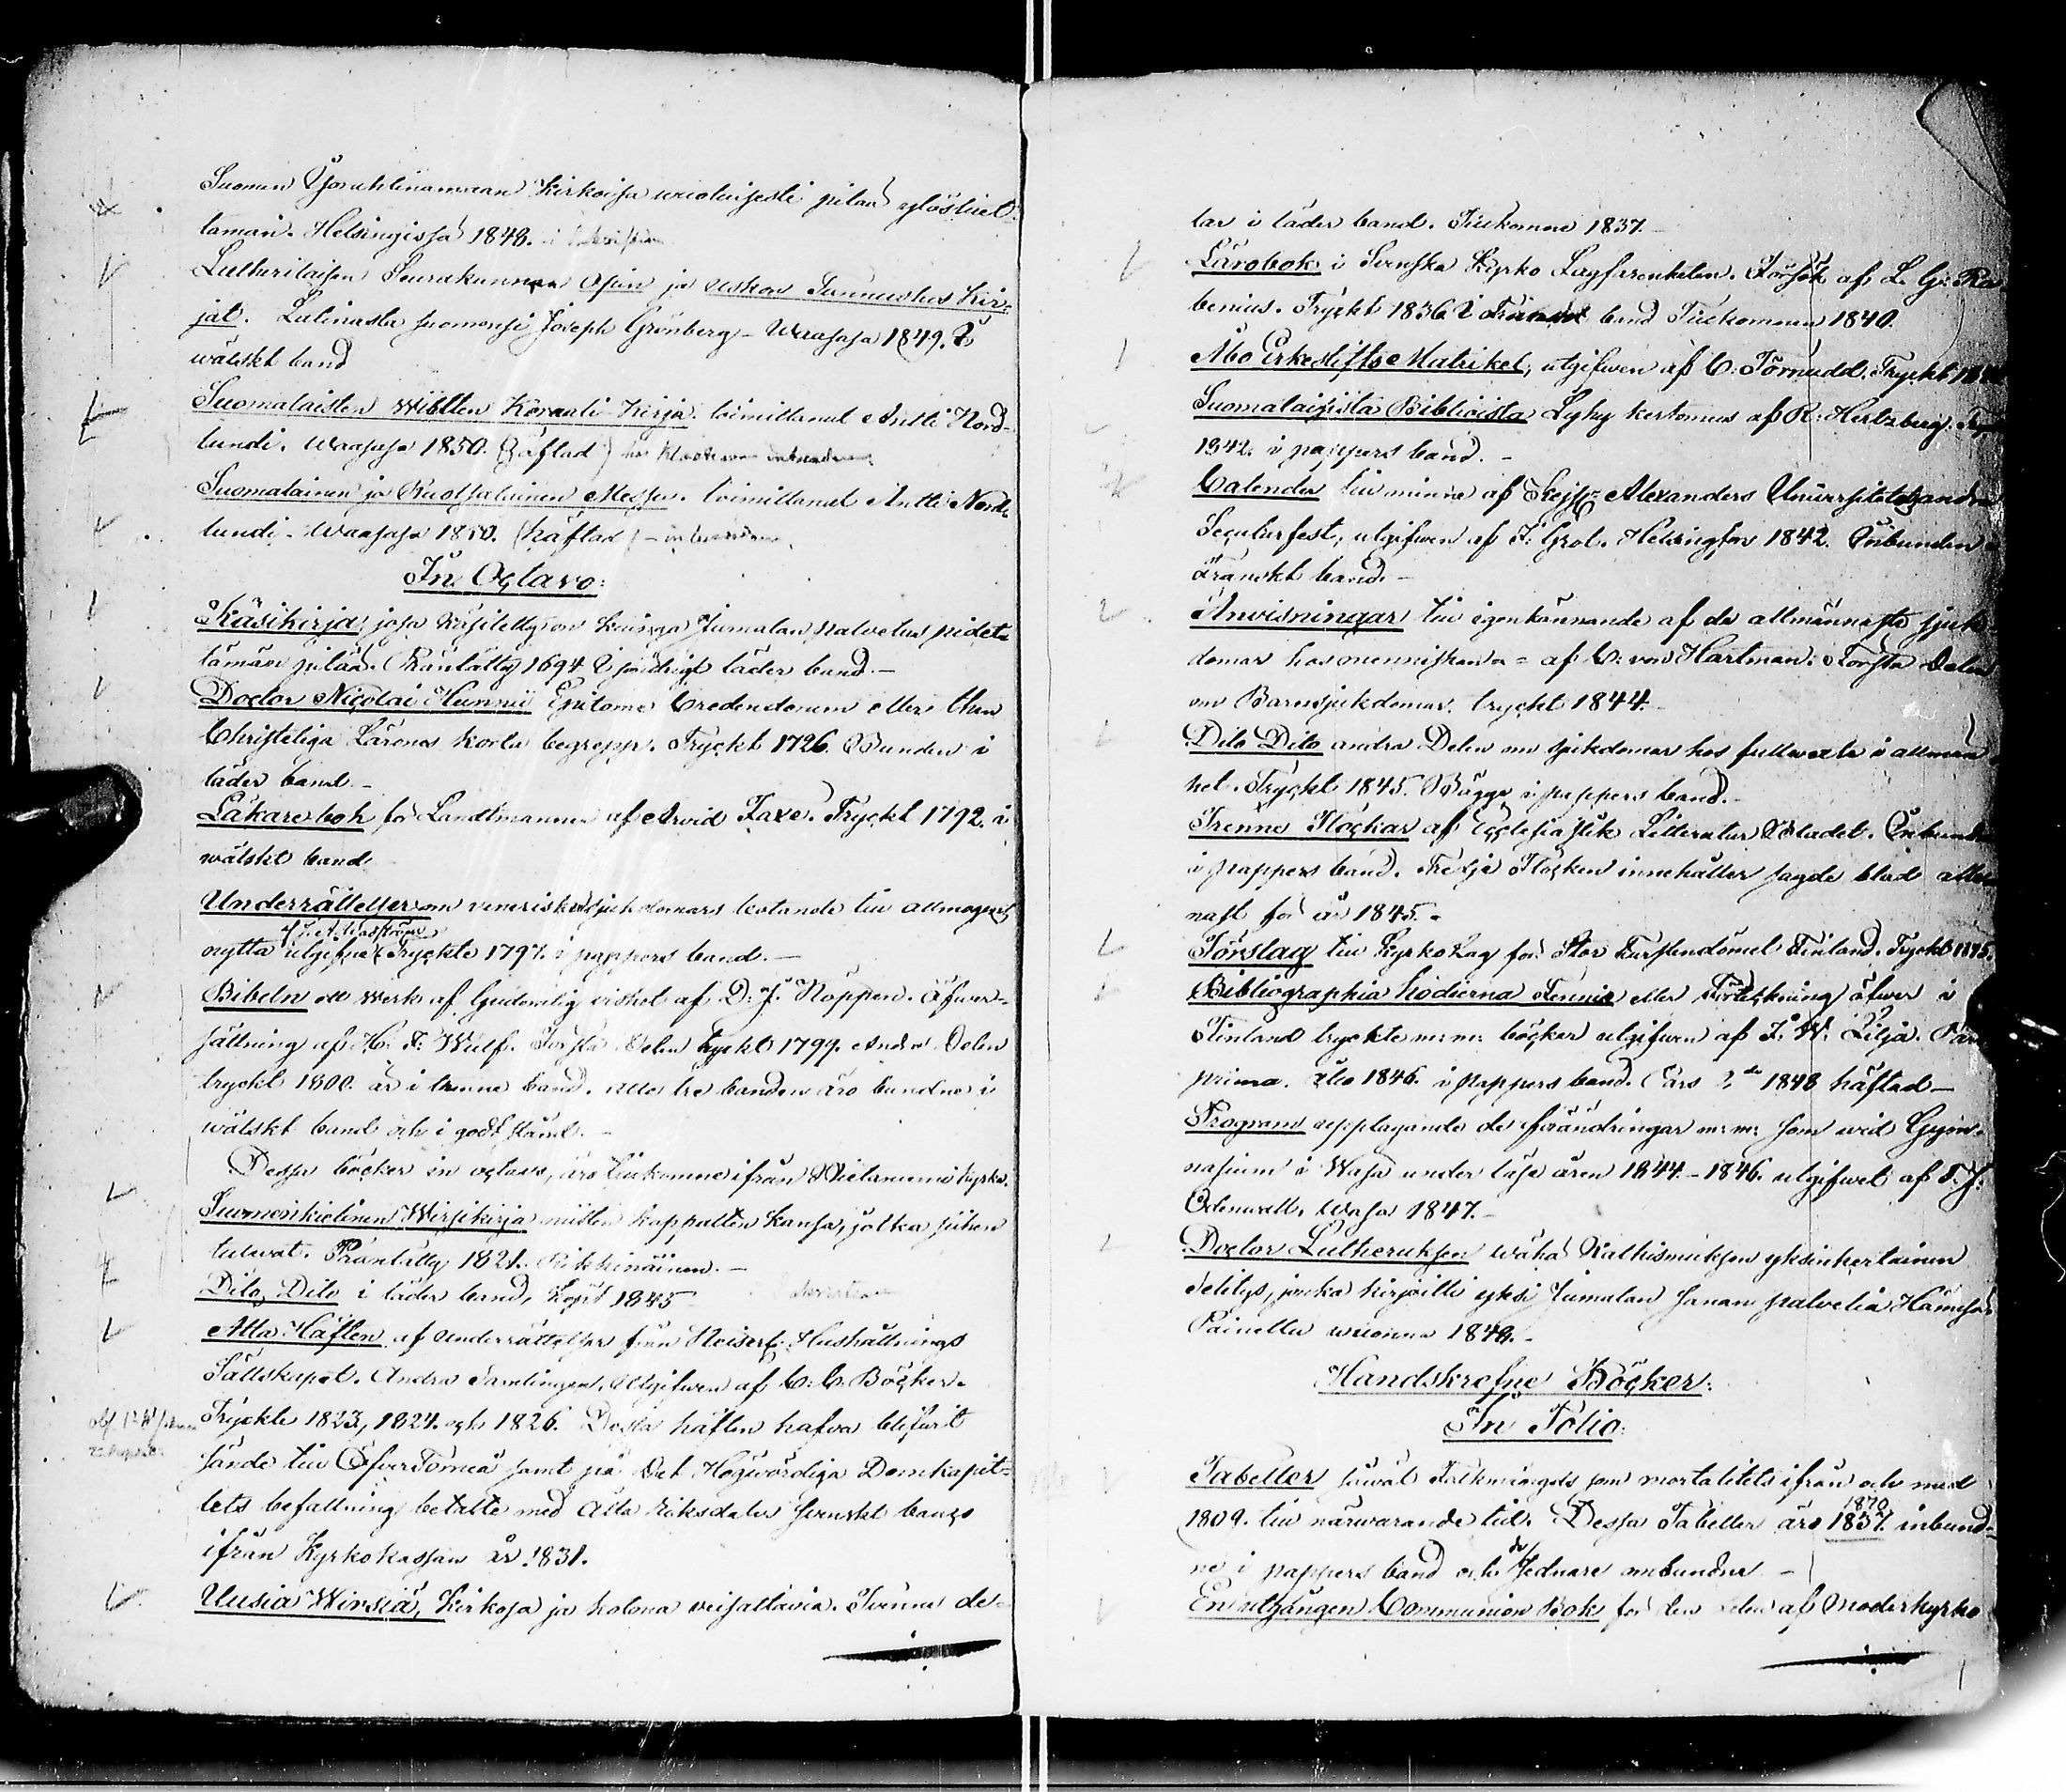 Suomen Isoruhtinanmaan Kirkoisa wuotuisesti pitää
taman. Helsingissä 1848.
Lutherilaisen Seurakunnan Opin ja uskon Tunnustus Kir-
jat. Latinasta suomensi Joseph Grönberg - Waasasa 1849. I
wälskt band
Suomalaisten Wirtten Koraali-Kirja. toimittanut Antti Nord-
lundi. Waasasa 1850. (häftad)
Suomalainen ja Ruotsalainen Messu. toimittanut Antti Nord-
lundi. Waasasa 1850. (häftad)
In Octavo:
Käsikirja, josa käsitetty on kuinga Jumalan palvelus pidet-
tämän pitää. Präntätty 1694 läder band. -
Doctor Nicolai Hunnii Epitome Credendorum eller then
Christeliga Lärones korta begrepp. Tryckt 1726. Bunden i
läder band. -
Läkarebok för Landtmannen af Arvid Faxe. Tryckt 1792. i
wälskt band
Underrättelser om veneriske sjukdomars botande till allmogens
nytta utgifne Tryckte 1797. i pappers band. -
Bibeln ett Werk af Gudomlig vishet af D: J. Köppen. Öfwer-
sättning af H. F: Wulf. Första Delen tryckt 1799. Andra Delen
tryckt 1800. är i tvenne band. alla tre banden äro bundne i
wälskt band och i godt stånd. -
Dessa böcker in octavo, äro tillkomne ifrån Hietaniemi kyrka.
Suomenkielinen Wirsikirja niitten kappalten kansa, jotka siihen
tulewat. Präntätty 1821. Rikkinäinen. -
Dito, Dito i läder band, köpt 1845
Åtta Häften af Underrättelser från Keiserl: Hushållnings
Sällskapet. Andra Samlingen. Utgifwen af C: C. Böcker.
Tryckte 1823, 1824. och 1826. Dessa häften hafva blifwit
sände till ÖfverTorneå samt på Det Högwördiga Domkapit-
lets befallning betalte med Åtta Riksdaler Svenskt banco
ifrån Kyrkokassan år 1831.
Uusia Wirsiä, Kirkosa ja kotona veisattavia. Tvenne de-
lar i läder band. Tillkomne 1837.
Lärobok i Svenska Kyrko Lagfarenheten. Försök af L. G: Ra
benius. Tryckt 1836 I band Tillkommen 1840.
Åbo ErkeStifts Matrikel, utgifwen af C. Törnudd. Tryckt
Suomalaisista Biblioista Lyhy kertomus af R. Hertzberg.
1842. i pappers band. -
Calender till minne af Kejs: Alexanders Universitetets andra
Secularfest, utgifwen af J: Grot. Helsingfors 1842. Inbunden
Franskt band. -
Anvisningar till igenkännande af de allmännaste sjuk
domar hos menniskan - af C: von Hartman. Första Delen
om Barnsjukdomar. tryckt 1844. -
Dito Dito andra Delen om sjukdomar hos fullwexte i allmän
het. Tryckt 1845. Bägge i pappers band. -
Trenne Häckar af Ecclesiastik Litteratur Bladet.
i pappers band. innehåller sagde blad
nast för år 1845. -
Förslag till KyrkoLag för Stor Furstendömet Finland. Tryckt 1845.
Bibliographia hodierna Fennia eller Förteckning öfwer i
Finland tryckte m: m: böcker utgifwen af J. W. Lilja. Pars
prima. Åbo 1846. i pappers band. Pars 2:da 1848 häftad -
Program upptagande de förändringar m: m: som wid Gym-
nasium i Wasa under läse åren 1844 - 1846. utgifwet af F. J.
Odenwall, Wasa 1847. -
Doctor Lutheruksen wähä Kathismuksen yksinkertainen
selitys, jonka kirjoitti yksi Jumalan Sanan palvelia Hämesä.
Painettu wuonna 1848. -
Handskrefne Böcker:
In Folio:
Tabeller såwäl Folkmängds som mortalitets ifrån och med
1809. till närwarande tid. Dessa Tabeller äro 1837. inbund-
1870
ne i pappers band och de sednare inbunden -
En utgången Communion Bok för den delen af Moderkyrko